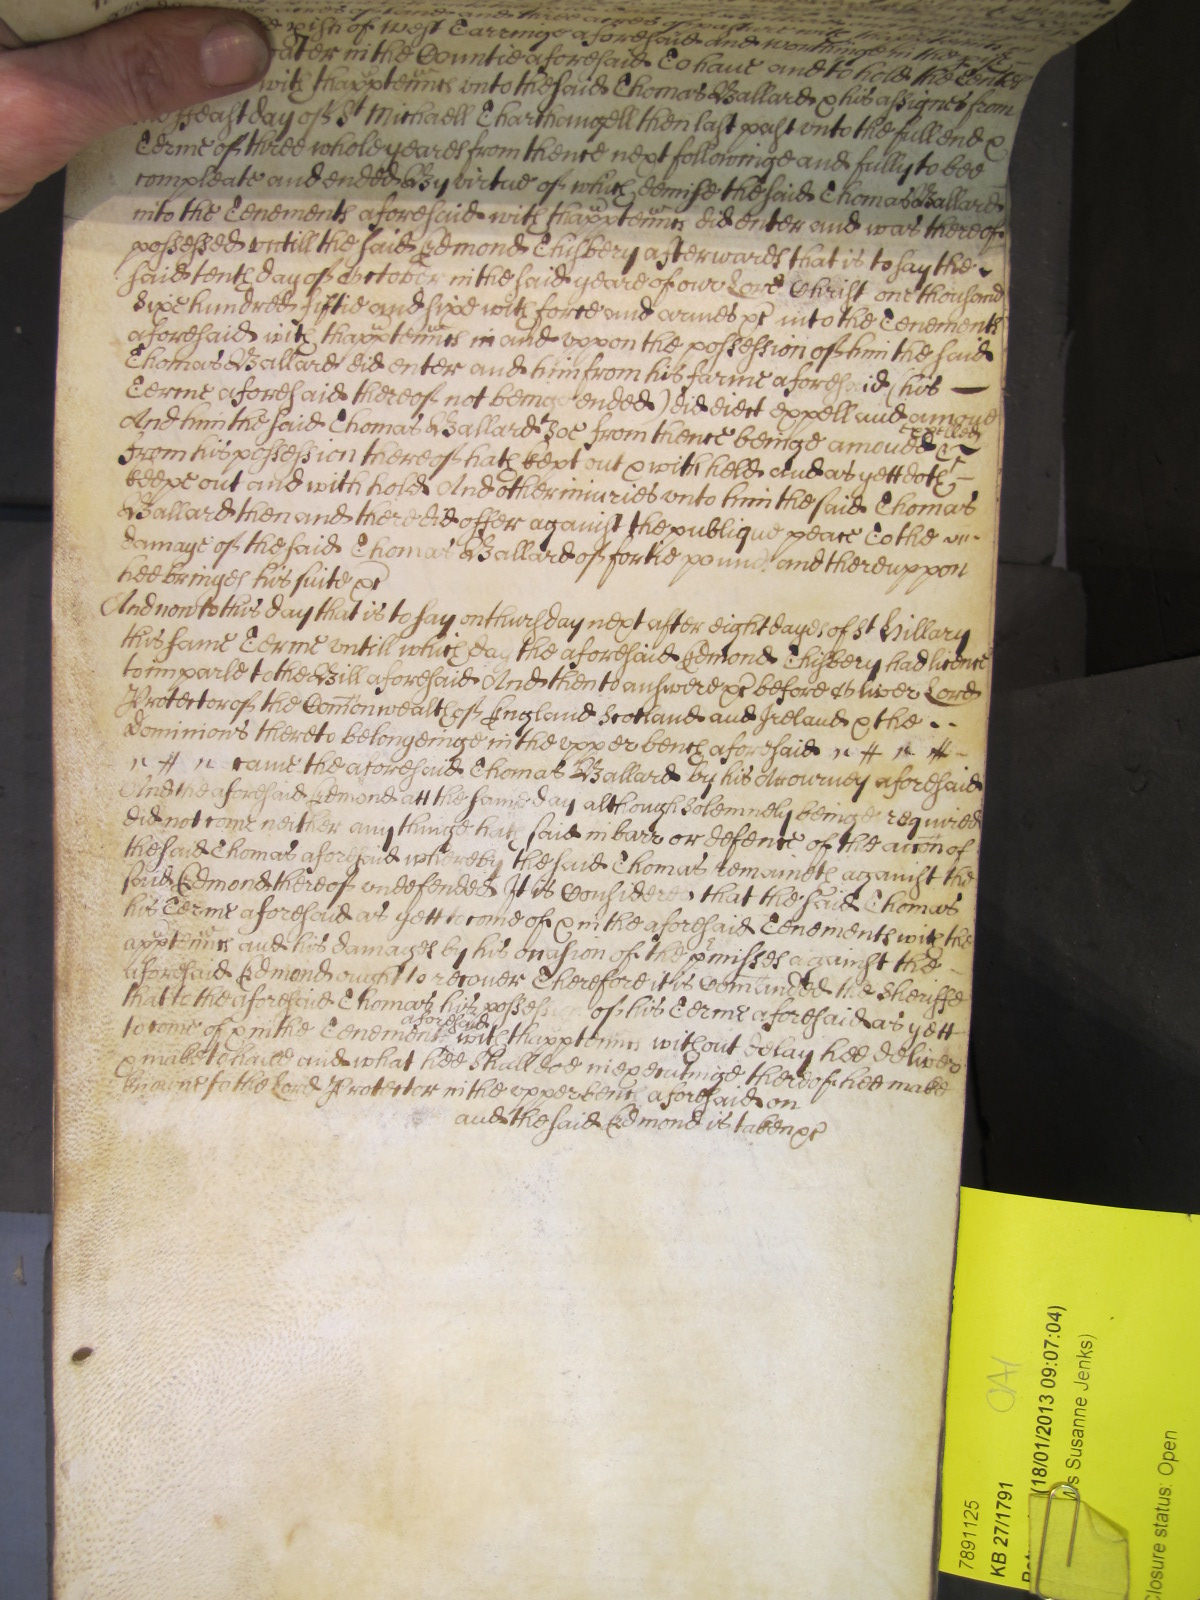 acres of land and three acres of pasture with thapptenncs
pish of West Tarringe aforesaid and worthinge in the
ater in the Countie aforesaid To haue and to hold the Tenemts
with thapptenncs vnto the said Thomas Ballard & his assignes from
the ffeast day of St Michaell Tharchangell then last past vnto the full end &
Terme of three whole yeares from thence next followinge and fully to bee
compleate and ended By virtue of which demise the said Thomas Ballard
into the Tenements aforesaid with thapptenncs did enter and was thereof
possessed vntill the said Edmond Chisbery afterwards that is to say the
said tenth day of October in the said yeare of our Lord Christ one thousand
Sixe hundred fiftie and sixe with force and armes &c into the Tenements
aforesaid with thapptenncs in and vppon the possession of him the said
Thomas Ballard did enter and him from his farme aforesaid (his
Terme aforesaid thereof not beinge ended) did eiect expell and amove
And him the said Thomas Ballard soe from thence beinge amoued expelled &
from his possession thereof hath kept out & with held and as yett doth
keepe out and with hold And other iniuries vnto him the said Thomas
Ballard then and there did offer against the publique peace To the
damage of the said Thomas Ballard of fortie pounds and thereuppon
hee bringes his suite &c
And now to this day that is to say on thursday next after eight dayes of St Hillary
this same Terme vntill which day the aforesaid Edmond Chisbery had licence
to imparle to the Bill aforesaid And then to answere &c before Oliver Lord
Protector of the Com̄onwealth of England Scotland and Ireland & the
Dominions thereto belongeinge in the vpper bench aforesaid
came the aforesaid Thomas Ballard by his Attourney aforesaid
And the aforesaid Edmond att the same day although solemnely beinge required
did not come neither any thinge hath said in barr or defence of the accōn of
the said Thomas aforesaid whereby the said Thomas remaineth against the
said Edmond thereof vndefended It is Considered that the said Thomas
his Terme aforesaid as yett to come of & in the aforesaid Tenements with the
apptenncs and his damages by his occasion of the p̄misses against the
aforesaid Edmond ought to recouer Therefore it is Com̄anded the Sheriffe
that to the aforesaid Thomas his possession of his Terme aforesaid as yett
to come of & in the Tenements aforesaid with thapptenncs without delay hee deliver
& make to haue and what hee shall doe in executinge thereof hee make
knowne to the Lord Protector in the vpper bench aforesaid on
and the said Edmond is taken &c
7891125
KB 27/1791
(18/01/2013 09:07:04)
s Susanne Jenks)
Closure status: Open